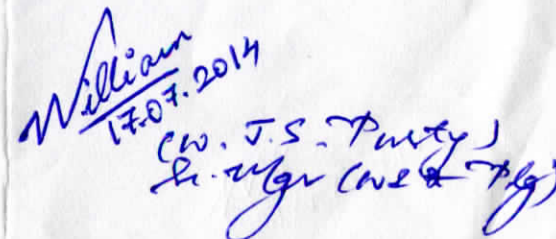 William
17.07.2014
(W. J.S. Purty)
Sr. Mgr (WE & Plg)